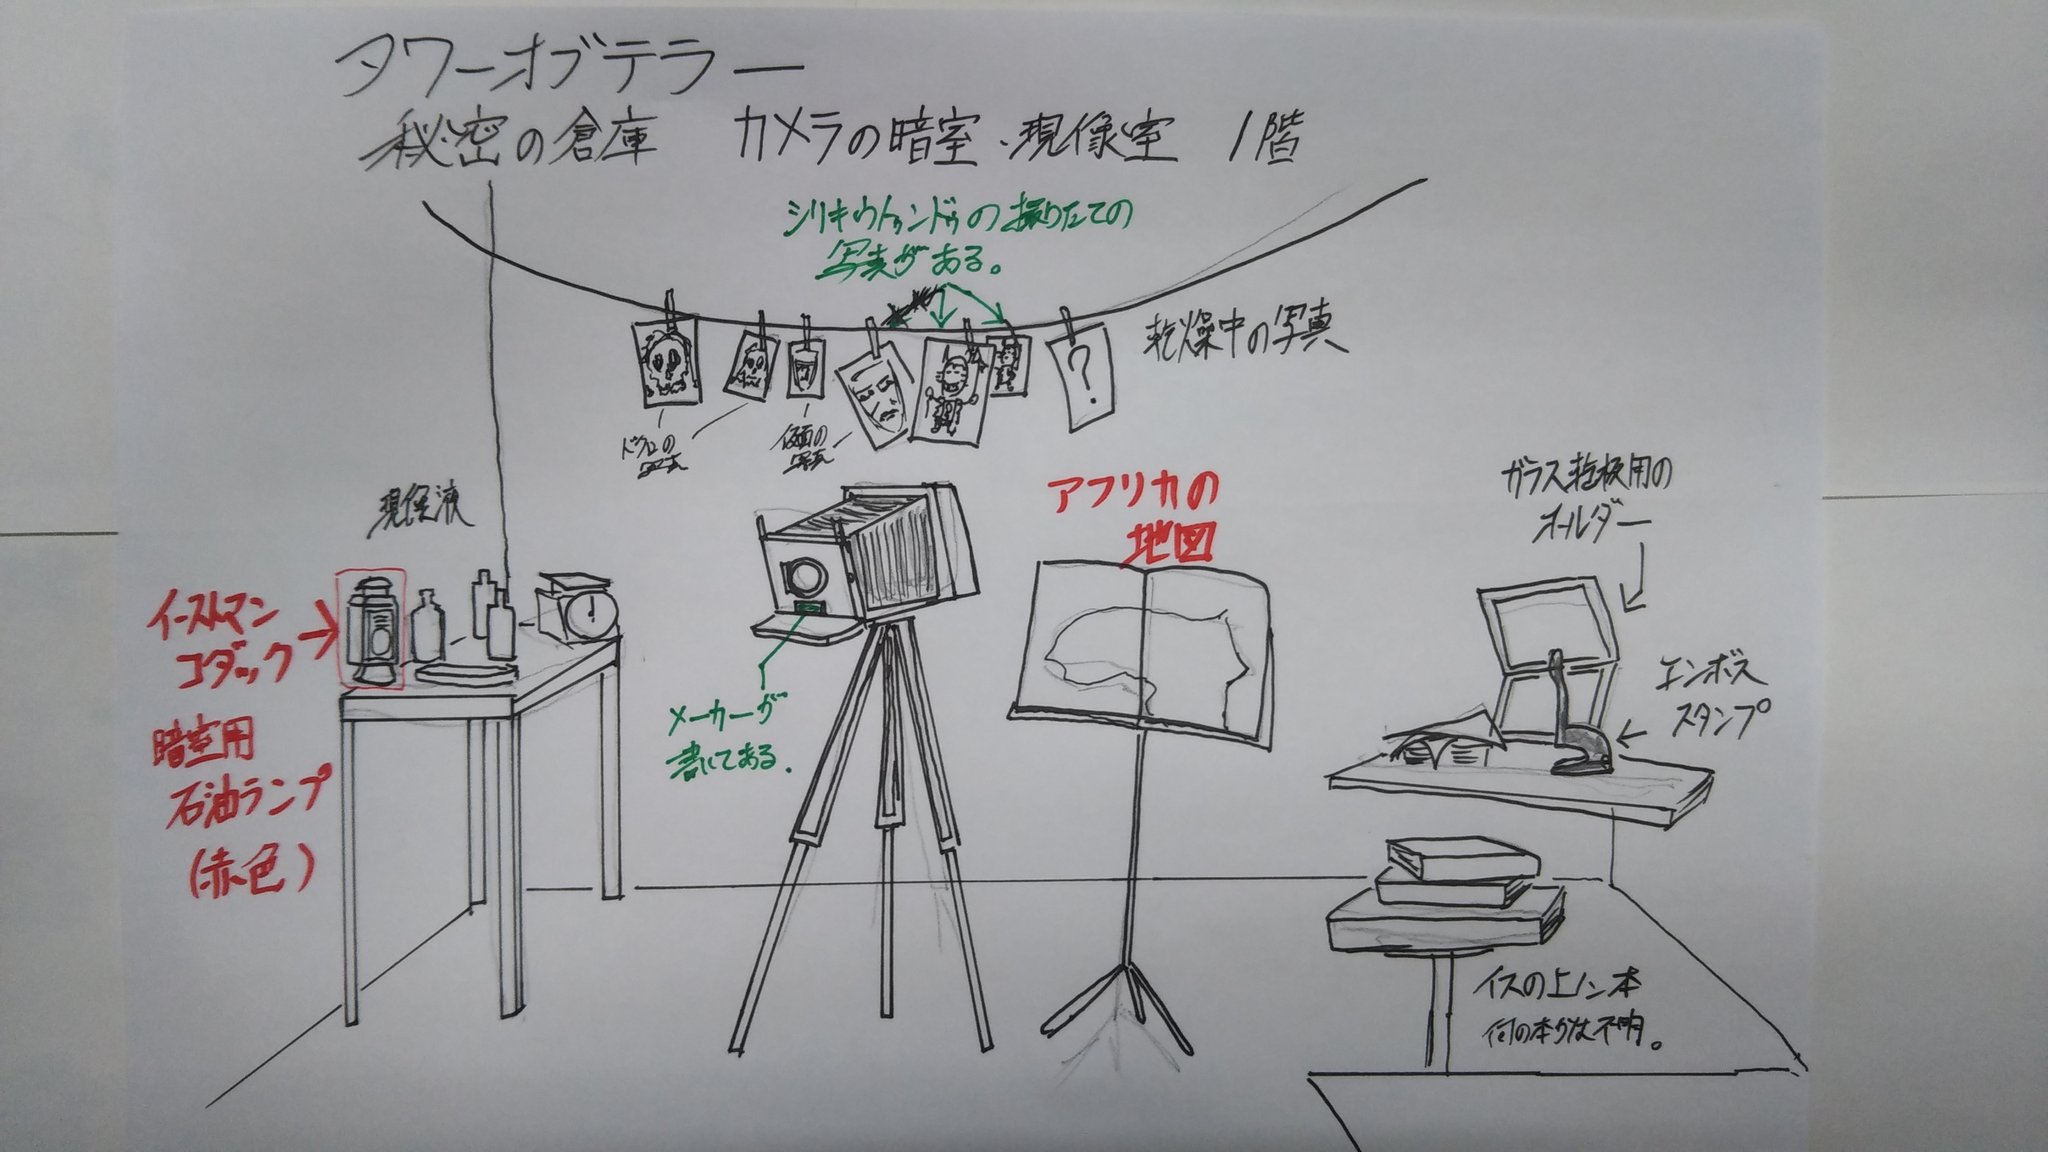 タワーオブテラー
秘密の倉庫 カメラの暗室・現像室 1階
シリキウトゥンドゥの撮りたての
写真がある。
乾燥中の写真
?
ドクロの
写真
仮面の
写真
現像液
アフリカの
地図
ガラス乾板用の
ホルダー
イーストマン
コダック
暗室用
石油ランプ
(赤色)
メーカーが
書いてある.
エンボス
スタンプ
イスの上ノ本
何の本かは不明。